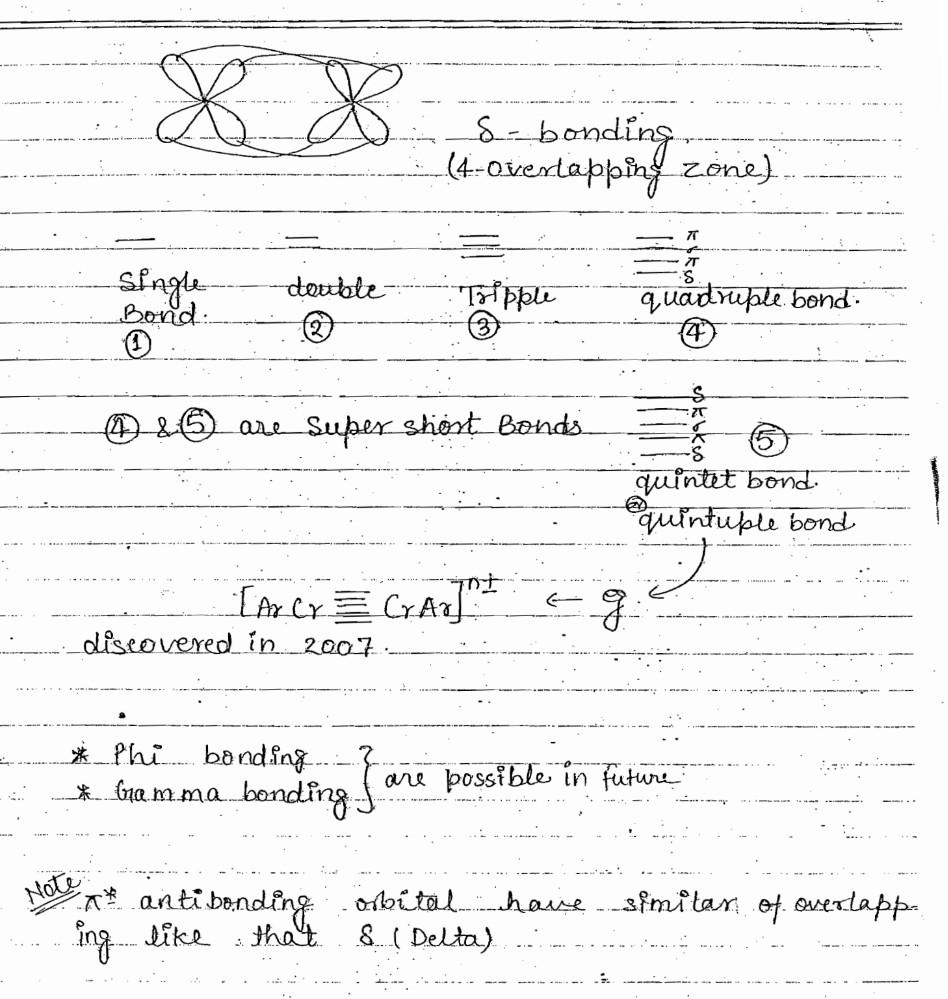 δ - bonding
(4-overlapping zone)
π
σ
π
δ
Single
Bond.
double
Tripple
quadruple bond.
①
②
③
④
δ
π
σ
π
δ
④ & ⑤ are Super short Bonds
⑤
quintet bond.
or
quintuple bond
[Ar Cr ≣ CrAr]ⁿ± ← eg.
discovered in 2007.
* Phi bonding
* Gamma bonding } are possible in future
Note π* antibonding orbital have similar of overlapp-
ing like that δ (Delta)